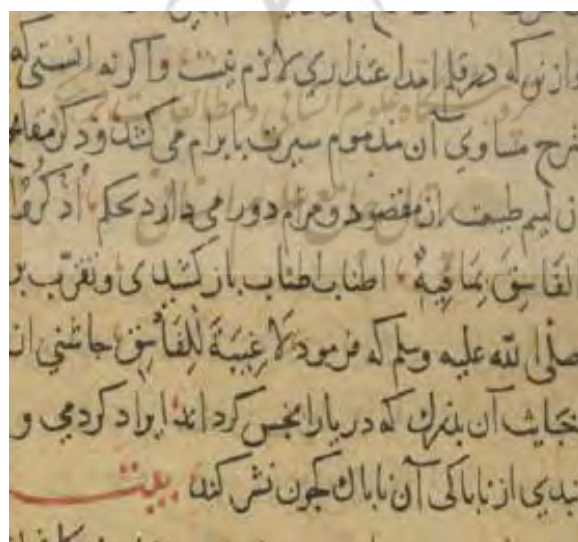 دازنون که در قلم امدا عنداری لازم نیست و اکر نه انستی که
شرح مساوی آن مذموم سیرت بابرام می کشد و ذکر مقابح
آن لییم طبیعت از مقصود و مرام دور می دارد بحکم اُذْكُرُوا
الفَاسِقَ بِمَا فِيهِ اطناب اطناب باز کشیدی و تقرّب بر
صلّی الله علیه و سلم که فرمود لَا غِيبَةَ لِلْفَاسِقِ جاشنی از
خباثث آن بذفرك که دریا را نجس کرداند ایراد کردمی و
نبدی از ناباکی آن ناباك جون نشر کند بیت